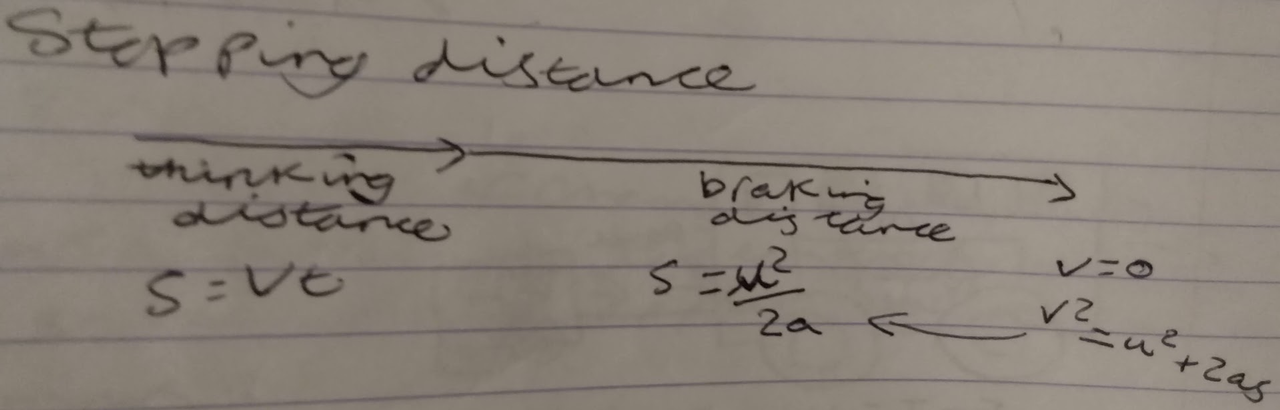 Stopping distance
thinking distance
braking distance
S = Vt
S = u²/2a
v = 0
v² = u² + 2as